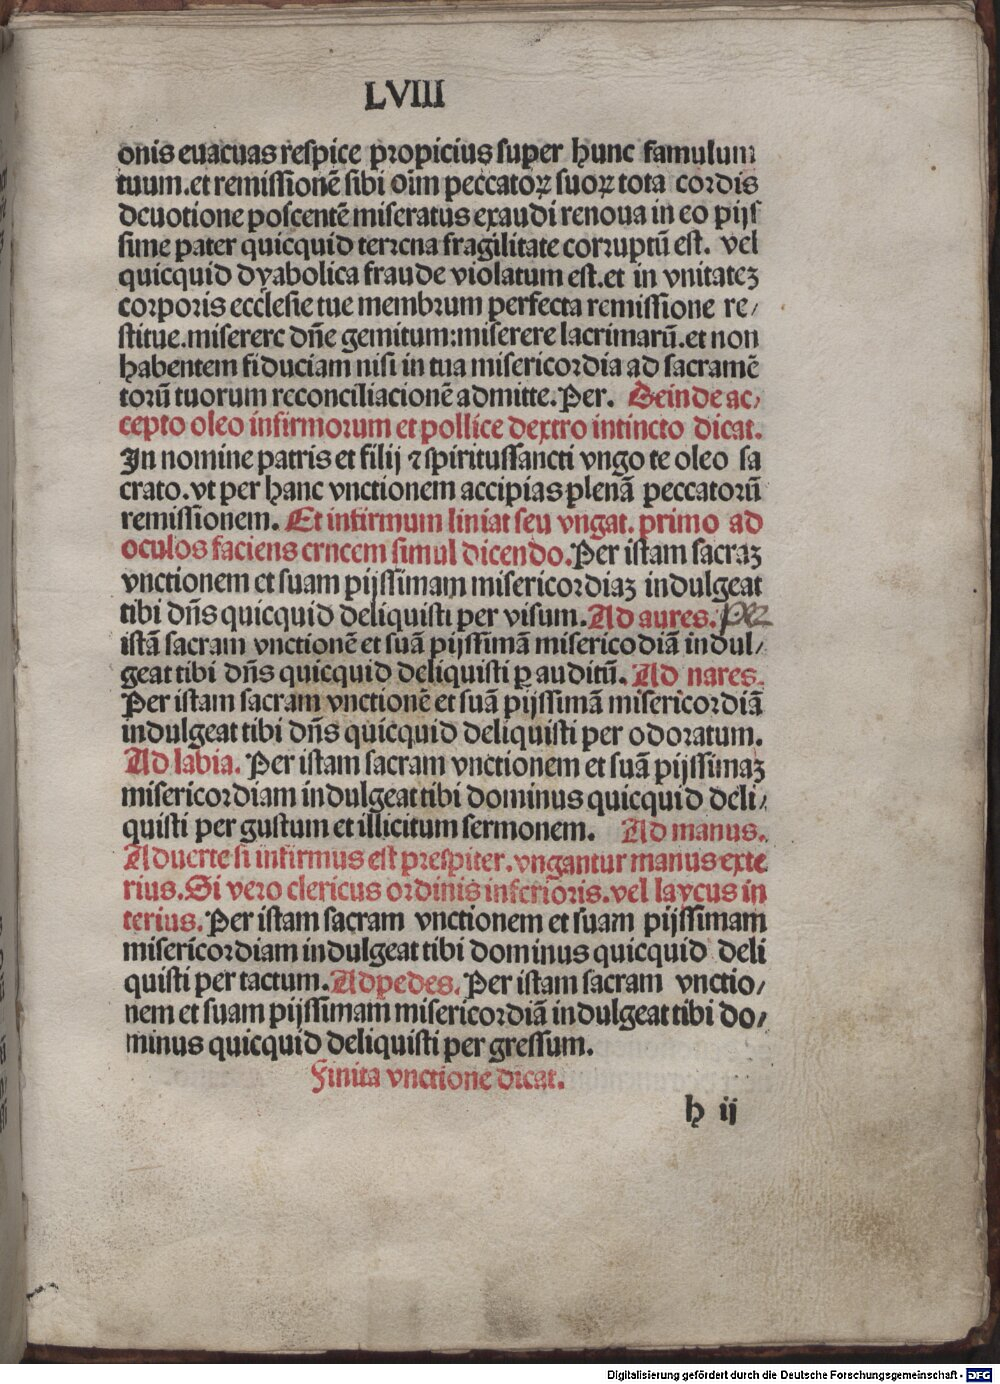 LVIII
onis euacuas respice propicius super hunc famulum
tuum.et remissionē sibi oīm peccatoꝝ suoꝝ tota cordis
deuotione poscentē miseratus exaudi renoua in eo pijs
sime pater quicquid terrena fragilitate corruptū est. vel
quicquid dyabolica fraude violatum est.et in vnitateꝫ
corporis ecclesie tue membrum perfecta remissione re/
stitue.miserere dn̄e gemitum:miserere lacrimarū.et non
habentem fiduciam nisi in tua misericordia ad sacramē
torū tuorum reconciliacionē admitte.Per. Deinde ac/
cepto oleo infirmorum et pollice dextro intincto dicat.
In nomine patris et filij ⁊ spiritussancti vngo te oleo sa
crato.vt per hanc vnctionem accipias plenā peccatorū
remissionem. Et infirmum liniat seu vngat. primo ad
oculos faciens crncem simul dicendo.Per istam sacraꝫ
vnctionem et suam pijssimam misericordiaꝫ indulgeat
tibi dn̄s quicquid deliquisti per visum.Ad aures. per
istā sacram vnctionē et suā pijssimā misericodiā indul/
geat tibi dn̄s quicquid deliquisti ꝑ auditū. Ad nares.
Per istam sacram vnctionē et suā pijssimā misericordiā
indulgeat tibi dn̄s quicquid deliquisti per odoratum.
Ad labia. Per istam sacram vnctionem et suā pijssimaꝫ
misericordiam indulgeat tibi dominus quicquid deli/
quisti per gustum et illicitum sermonem. Ad manus.
Aduerte si infirmus est prespiter.vngantur manus exte
rius.Si vero clericus ordinis inferioris.vel laycus in
terius.Per istam sacram vnctionem et suam pijssimam
misericordiam indulgeat tibi dominus quicquid deli
quisti per tactum.Ad pedes. Per istam sacram vnctio/
nem et suam pijssimam misericordiā indulgeat tibi do/
minus quicquid deliquisti per gressum.
Finita vnctione dicat.
h ij
Digitalisierung gefördert durch die Deutsche Forschungsgemeinschaft - DFG